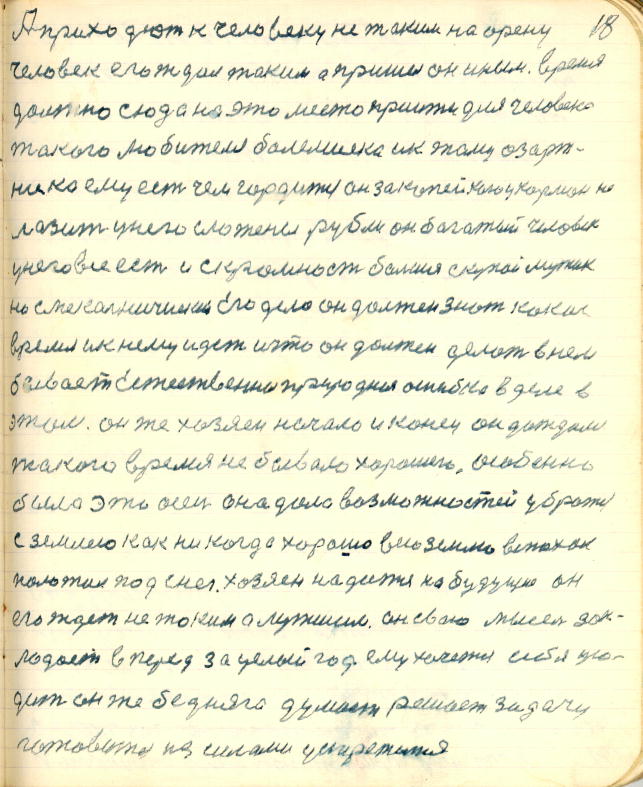 А приходют к человеку не таким на орену 18
человек его ждал таким а пришел он иным. время
должно сюда на это место прийти для человека
такого любителя болелшека и к тому озарт-
нико ему ест чем гордится он за копейкою у карман не
лазит у него сложены рубли он багатый человек
у него все ест и скромност болшая скупой мужик
но Его дело он должен знат какое
время и к нему идет и что он должен делат в нем
бывает Естественно природная ошибка в деле в
этом. он же хозяен начало и конец он дождал
такого время не бывало хорошего, особенно
была это осен она дала возможностей убратся
с землею как никогда хорошо всю землю вспахал
положил под снег. хозяен надется на будущее он
его ждет не таким а лучшим. он свою мысел зак-
ладает вперед за целый год ему хочется себя
он же бедняга думает решает задачу
готовится из силами устретится